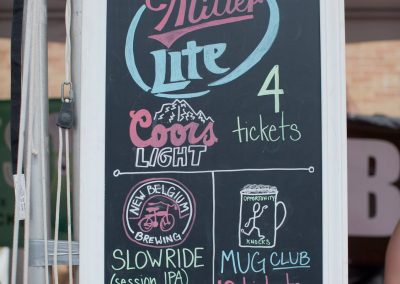 Miller
Lite
4
tickets
Coors
LIGHT
NEW BELGIUM
BREWING
SLOWRIDE
(session IPA)
OPPORTUNITY
KNOCKS
MUG CLUB
tickets
B